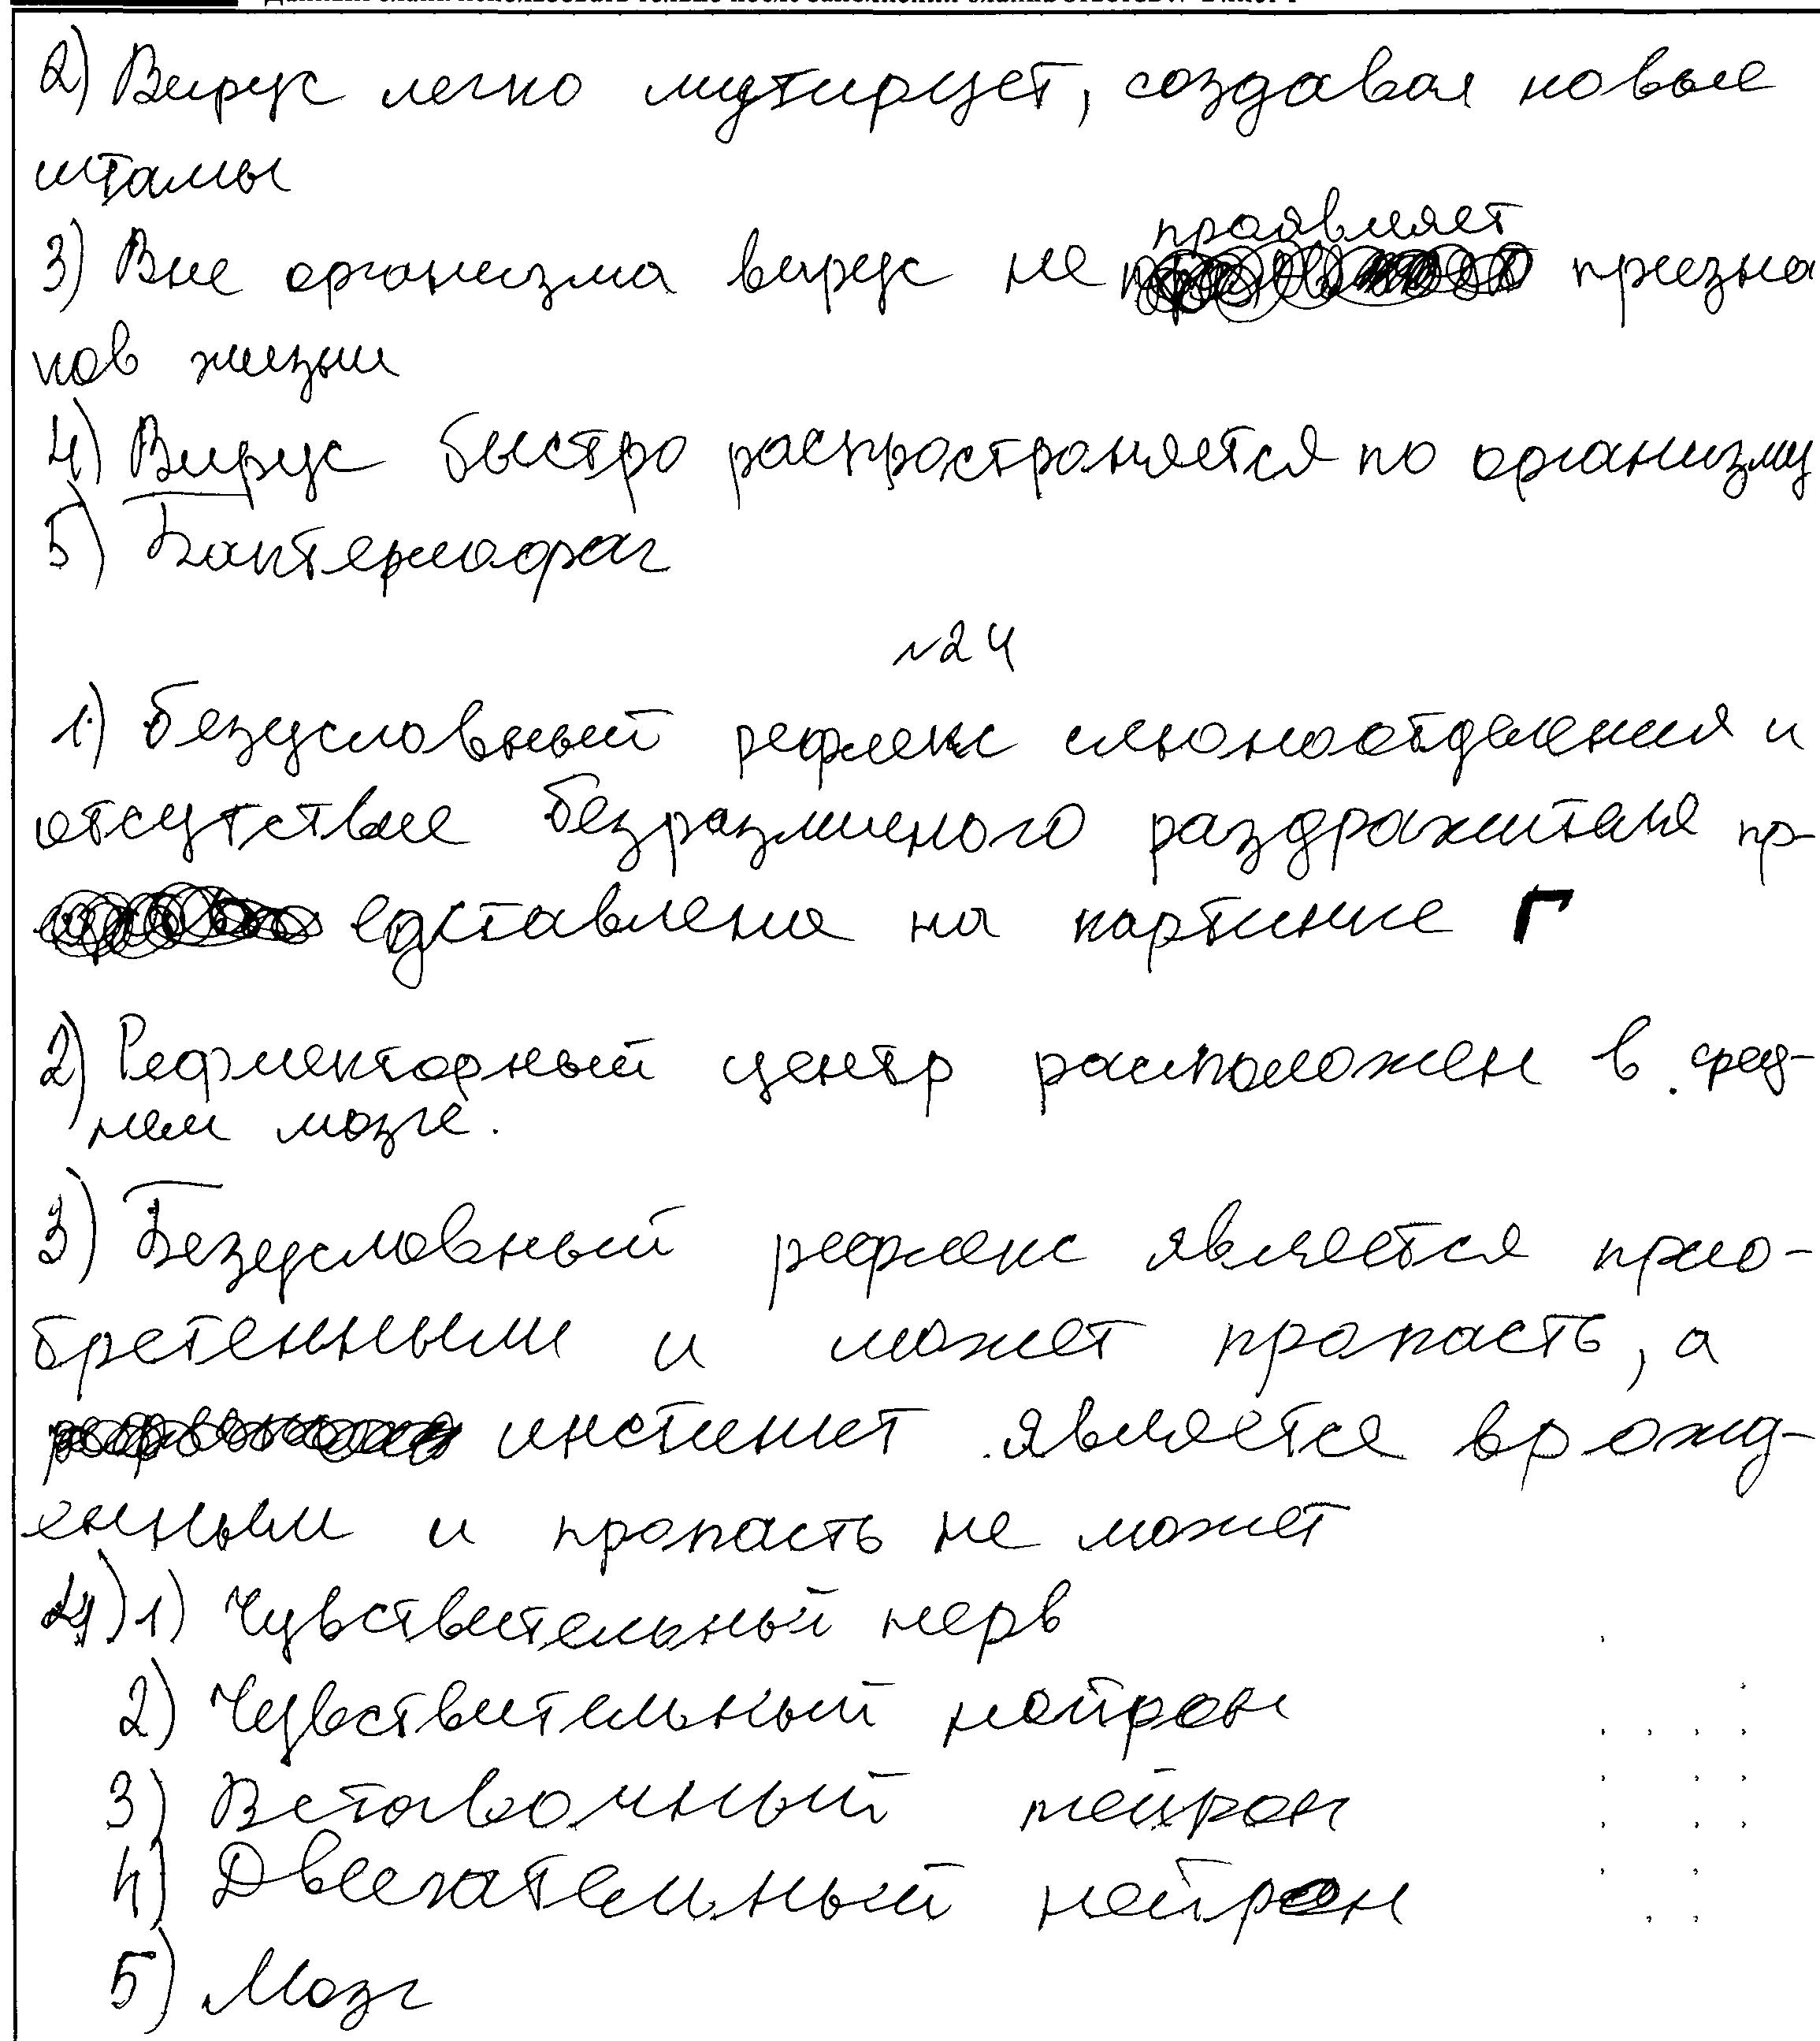 2) Вирус легко мутирует, создавая новые
штамы
проявляет
3) Вне организма вирус не призна
ков жизни
4) Вирус быстро распространяется по организму
5) Бактериофаг
№24
1) Безусловный рефлекс слюноотделения и
отсутствие безразличного раздражителя пр-
едставлена на картинке Г
2) Рефлекторный центр расположен в сред-
нем мозге.
3) Безусловный рефлекс является прио-
бретенными и может пропасть, а
инстинкт является врожд-
енным и пропасть не может
4) 1) Чувствительный нерв
2) Чувствительный нейрон
3) Вставочный нейрон
4) Двигательный нейрон
5) Мозг